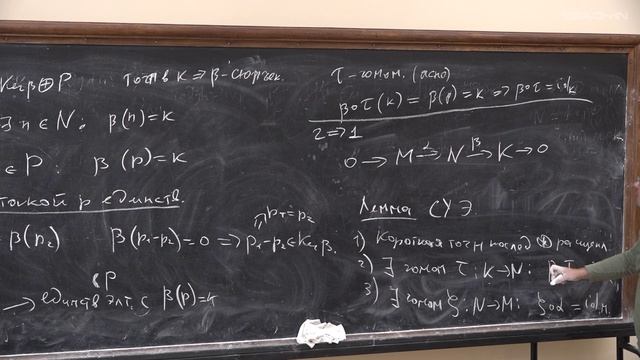 Ker β ⊕ P     точн в K ⇒ β-сюръек.
∃ n ∈ N: β(n) = k
∈ P: β(p) = k
точкой p единств.
β(p₂)     β(p₁-p₂) = 0 ⇒ p₁-p₂ ∈ Ker β.
p₁ = p₂
P
→ единств эл-т с β(p) = k
τ - гомом. (ясно)
β∘τ(k) = β(p) = k ⇒ β∘τ = id_K
2 ⇒ 1
0 → M →^α N →^β K → 0
Лемма СУЭ
1) Короткая точн послед ⊕ расщепл
2) ∃ гомом τ: K→N: β τ
3) ∃ гомом ξ: N→M: ξ∘α = id_M.